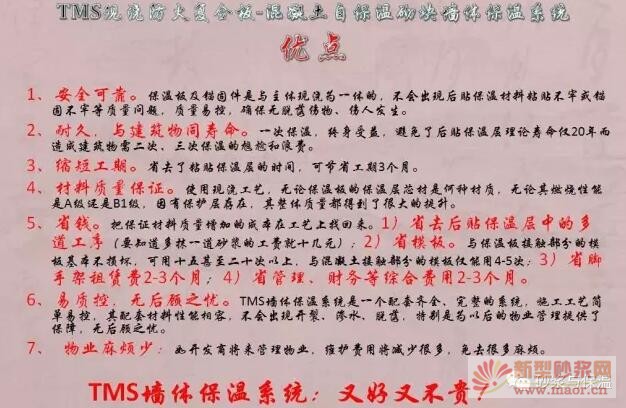 TMS现浇防火复合板-混凝土自保温砌块墙体保温系统
优点
1、安全可靠。保温板及锚固件是与主体现浇为一体的，不会出现后贴保温材料粘贴不牢或锚
固不牢等质量问题，质量易控，确保无脱落伤物、伤人发生。
2、耐久，与建筑物同寿命。一次保温，终身受益，避免了后贴保温层理论寿命仅20年而
造成建筑物需二次、三次保温的尴尬和浪费。
3、缩短工期。省去了粘贴保温层的时间，可节省工期3个月。
4、材料质量保证。使用现浇工艺，无论保温板的保温层芯材是何种材质，无论其燃烧性能
是A级还是B1级，因有保护层存在，其整体质量都得到了很大的提升。
5、省钱。把保证材料质量增加的成本在工艺上找回来。1）省去后贴保温层中的多
道工序（要知道多抹一道砂浆的工费就十几元）；2）省模板。与保温板接触部分的模
板基本不损坏，可用十五甚至二十次以上，与混凝土接触部分的模板仅能用4-5次；3）省脚
手架租赁费2-3个月；4）省管理、财务等综合费用2-3个月。
6、易质控，无后顾之忧。TMS墙体保温系统是一个配套齐全、完整的系统，施工工艺简
单易控，其配套材料性能相容，不会出现开裂、渗水、脱落，特别是为以后的物业管理提供了
保障，无后顾之忧。
7、物业麻烦少：如开发商将来管理物业，维护费用将减少很多，免去很多麻烦。
TMS墙体保温系统：又好又不贵！
新型砂浆网
www.maor.cn